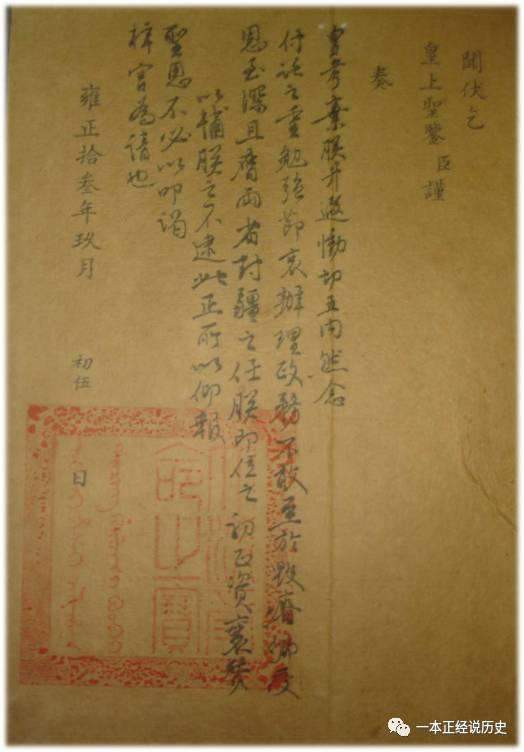 聞伏乞
皇上聖鑒臣謹
奏
皇考棄朕升遐慟切五內然念
付託之重勉強節哀辦理政務不敢至於毀瘠你受
恩至深且膺兩省封疆之任朕即位之初正資襄贊
以補朕之不逮此正所以仰報
聖恩不必以叩謁
梓宮為請也
雍正拾叁年玖月 初伍 日
命之寶
一本正经说历史